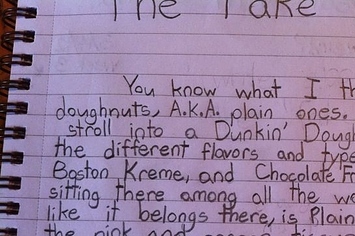 The Take
You know what I
doughnuts, A.K.A. plain ones.
stroll into a Dunkin'
the different flavors and
Boston Kreme, and Chocolate
sitting there among all the
like it belongs there, is Plain
the pink and